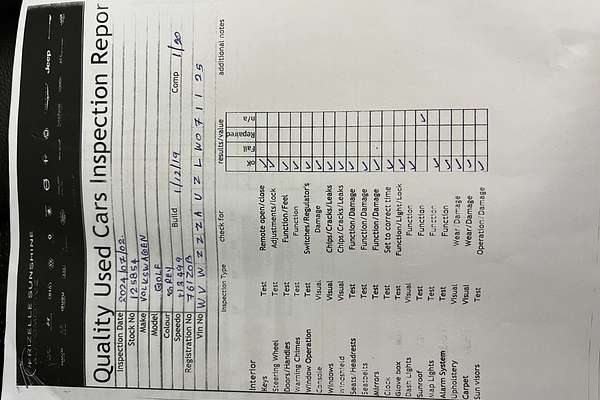 Jeep
Quality Used Cars Inspection Repor
Inspection Date 2024/02/02
Stock No 125854
Make VOLKSWAGEN
Model GOLF
Colour GREY Build 1/12/19 Comp 1/20
Speedo
Registration No
Vin No
Inspection Type check for results/value additional notes
ok Fail Repaired n/a
Interior
Keys Test Remote open/close
Steering Wheel Test Adjustments/lock
Doors/Handles Test Function/Feel
Warning Chimes Test Function
Window Operation Test Switches/Regulator's
Console Visual Damage
Windows Visual Chips/Cracks/Leaks
Windshield Visual Chips/Cracks/Leaks
Seats/Headrests Test Function/Damage
Seatbelts Test Function/Damage
Mirrors Test Function/Damage
Clock Test Set to correct time
Glove box Test Function/Light/Lock
Dash Lights Visual Function
Sunroof Test Function
Map Lights Test Function
Alarm System Test Function
Upholstery Visual Wear/Damage
Carpet Visual Wear/Damage
Sun visors Test Operation/Damage